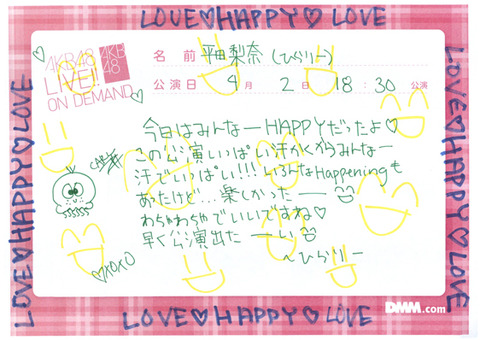 LOVE♡HAPPY♡LOVE
AKB48
LIVE!!
ON DEMAND
AKB
48
名 前 平田梨奈 (ひらりー)
公演日 4月 2日 18:30 公演
今日はみんなーHAPPYだったよ♡
この公演いっぱい汗かくからみんなー
汗でいっぱい!!! いろんなHappeningも
あったけど…楽しかったーー
わちゃわちゃでいいですね♡
早く公演出たーーい
~ひらりー
♡XOXO
LOVE♡HAPPY♡LOVE
LOVE♡HAPPY♡LOVE
LOVE♡HAPPY♡LOVE
DMM.com